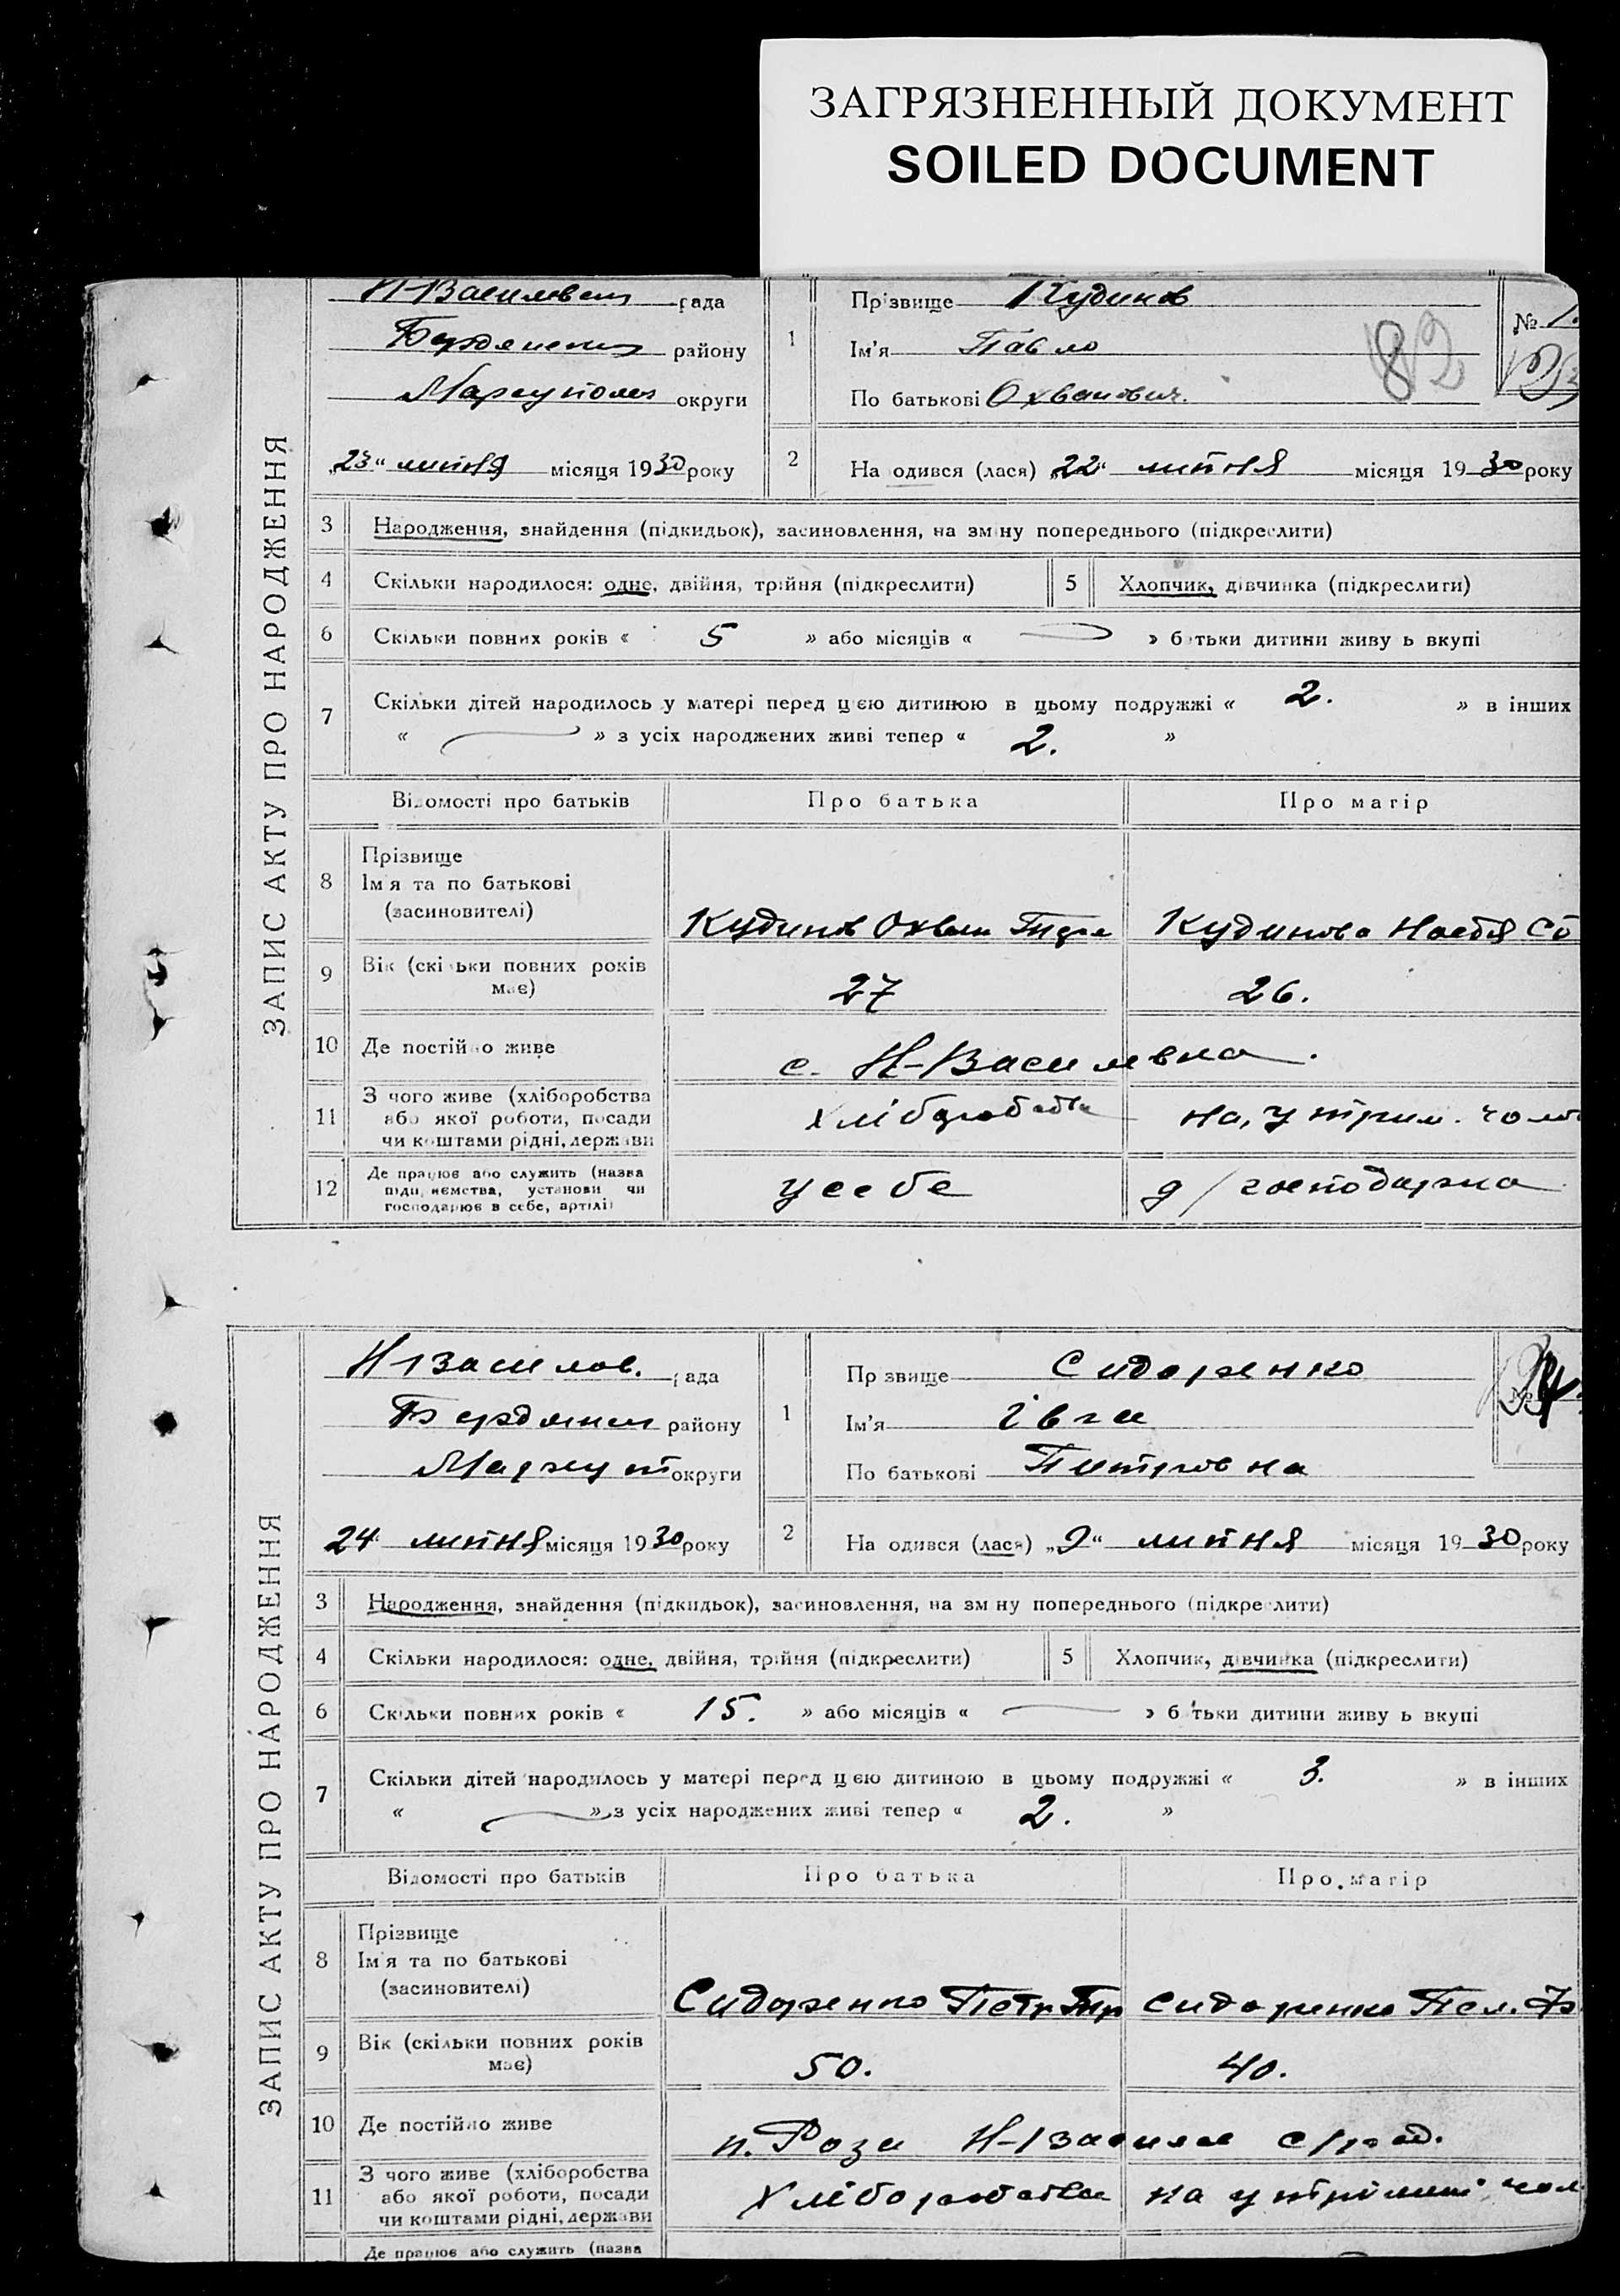 ЗАГРЯЗНЕННЫЙ ДОКУМЕНТ
SOILED DOCUMENT
ЗАПИС АКТУ ПРО НАРОДЖЕННЯ
рада
району
округи
„23“ липня місяця 1930 року
1
Прізвище Кудинов
Ім'я Павло
По батькові Охванович.
№ 1.
82
2
На одився (лася) „22“ липня місяця 1930 року
3 Народження, знайдення (підкидьок), засиновлення, на зміну попереднього (підкреслити)
4 Скільки народилося: одне, двійня, трійня (підкреслити)
5 Хлопчик, дівчинка (підкреслити)
6 Скільки повних років « 5 » або місяців « » батьки дитини живу ь вкупі
7 Скільки дітей народилось у матері перед цією дитиною в цьому подружжі « 2. » в інших
« » з усіх народжених живі тепер « 2. »
Відомості про батьків
Про батька
Про матір
8 Прізвище
Ім'я та по батькові
(засиновителі)
Кудинов Охван
Кудинова Настя
9 Вік (скільки повних років
має)
27
26.
10 Де постійно живе
с. Н-Василівка.
11 З чого живе (хліборобства
або якої роботи, посади
чи коштами рідні, держави
Хліборобства
на утрим. чол
12 Де працює або служить (назва
підприємства, установи чи
господарює в себе, артілі)
у себе
д/господарка
ЗАПИС АКТУ ПРО НАРОДЖЕННЯ
Н-Васильов. рада
району
округи
24“ липня місяця 1930 року
1
Пр звище Сидоренко
Ім'я Івга
По батькові Петровна
2
На одився (лася) „9“ липня місяця 1930 року
3 Народження, знайдення (підкидьок), засиновлення, на зм ну попереднього (підкреслити)
4 Скільки народилося: одне, двійня, трійня (підкреслити)
5 Хлопчик, дівчинка (підкреслити)
6 Скільки повних років « 15. » або місяців « » б тьки дитини живу ь вкупі
7 Скільки дітей народилось у матері перед цією дитиною в цьому подружжі « 3. » в інших
« » з усіх народжених живі тепер « 2. »
Відомості про батьків
Про батька
Про матір
8 Прізвище
Ім'я та по батькові
(засиновителі)
Сидоренко Петр
Сидоренко Пел.
9 Вік (скільки повних років
має)
50.
40.
10 Де постійно живе
п. Роза
11 З чого живе (хліборобства
або якої роботи, посади
чи коштами рідні, держави
Хліборобства
на утрімині чол
Де працює або служить (назва